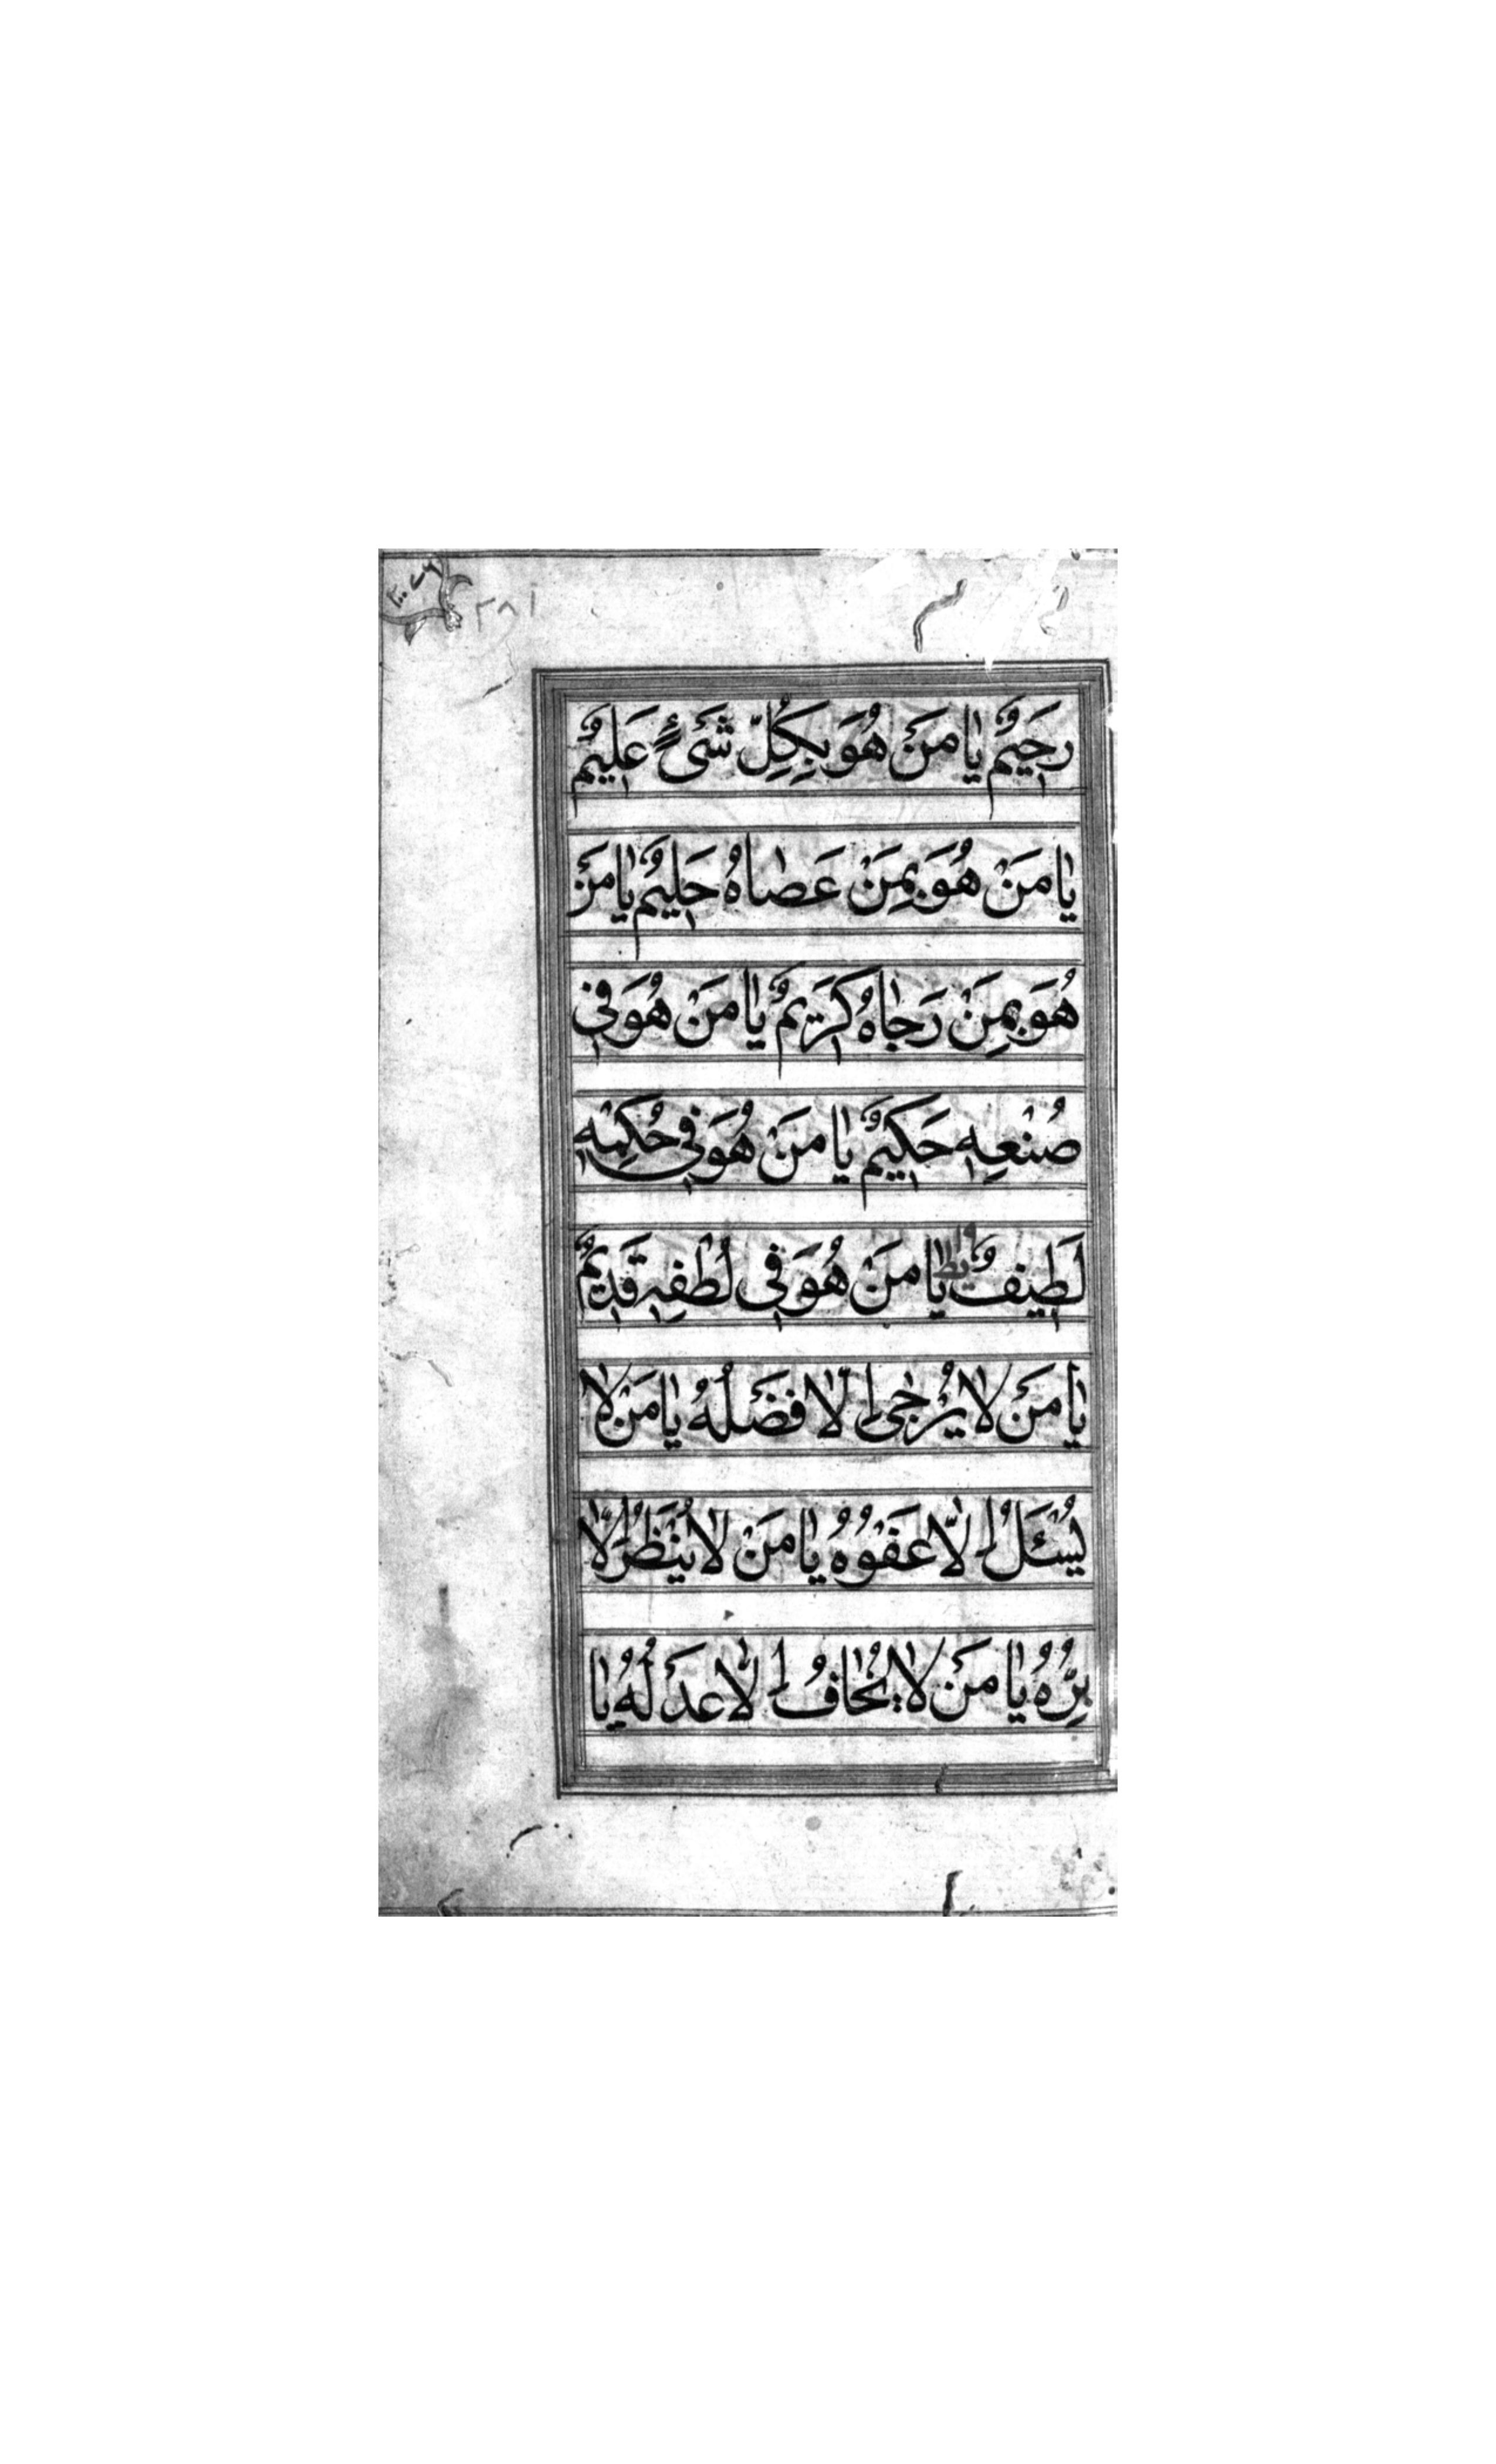 رَحِيمٌ يَا مَنْ هُوَ بِكُلِّ شَيْءٍ عَلِيمٌ
يَا مَنْ هُوَ بِمَنْ عَصَاهُ حَلِيمٌ يَا مَنْ
هُوَ بِمَنْ رَجَاهُ كَرِيمٌ يَا مَنْ هُوَ فِي
صُنْعِهِ حَكِيمٌ يَا مَنْ هُوَ فِي حُكْمِهِ
لَطِيفٌ يَا مَنْ هُوَ فِي لُطْفِهِ قَدِيمٌ
يَا مَنْ لَا يُرْجَى إِلَّا فَضْلُهُ يَا مَنْ لَا
يُسْئَلُ إِلَّا عَفْوُهُ يَا مَنْ لَا يُنْظَرُ إِلَّا
بِرُّهُ يَا مَنْ لَا يُخَافُ إِلَّا عَدْلُهُ يَا